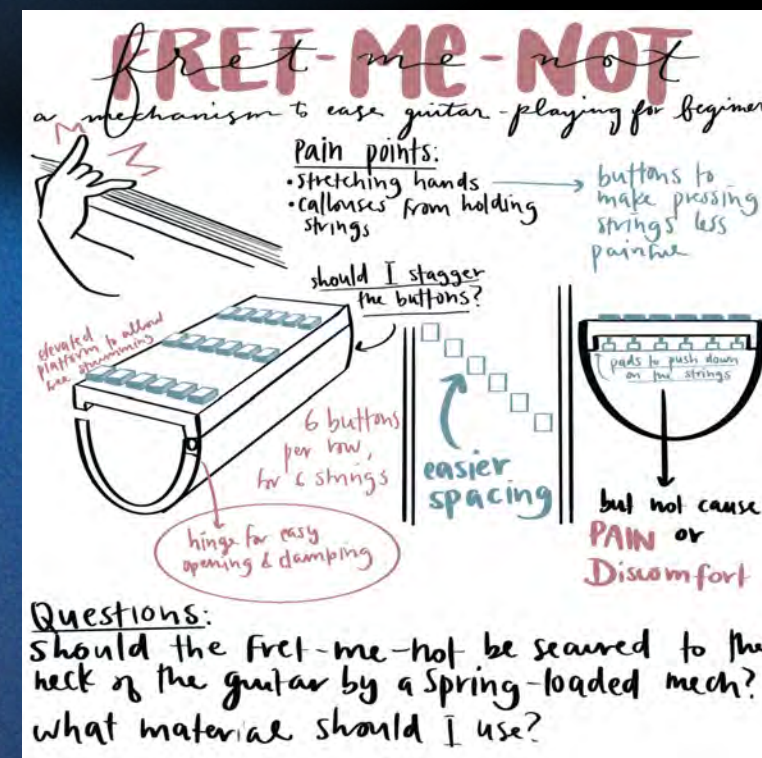 FRET-ME-NOT
a mechanism to ease guitar-playing for beginner
Pain points:
• stretching hands
• callouses from holding
strings
buttons to
make pressing
strings less
painful
should I stagger
the buttons?
elevated
platform to allow
free strumming
6 buttons
per row,
for 6 strings
hinge for easy
opening & clamping
easier
spacing
pads to push down
on the strings
but not cause
PAIN or
Discomfort
Questions:
should the Fret-me-not be secured to the
neck of the guitar by a Spring-loaded mech?
what material should I use?